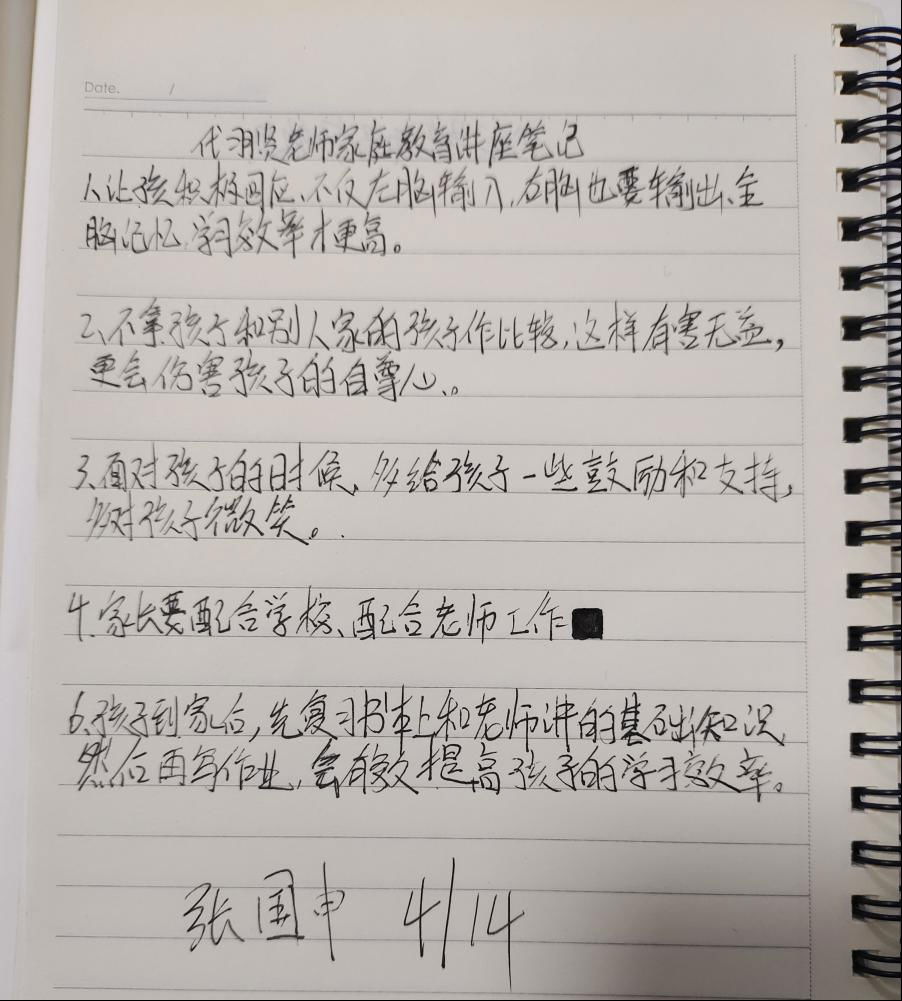 Date. /
代羽贤老师家庭教育讲座笔记
1、让孩积极回应、不仅左脑输入,右脑也要输出、全
脑记忆,学习效率才更高。
2、不拿孩子和别人家的孩子作比较,这样有害无益,
更会伤害孩子的自尊心、。
3、面对孩子的时候、多给孩子一些鼓励和支持,
多对孩子微笑。
4、家长要配合学校、配合老师工作
6、孩子到家后,先复习书本上和老师讲的基础知识,
然后再写作业,会有效提高孩子的学习效率。
张国申 4/14